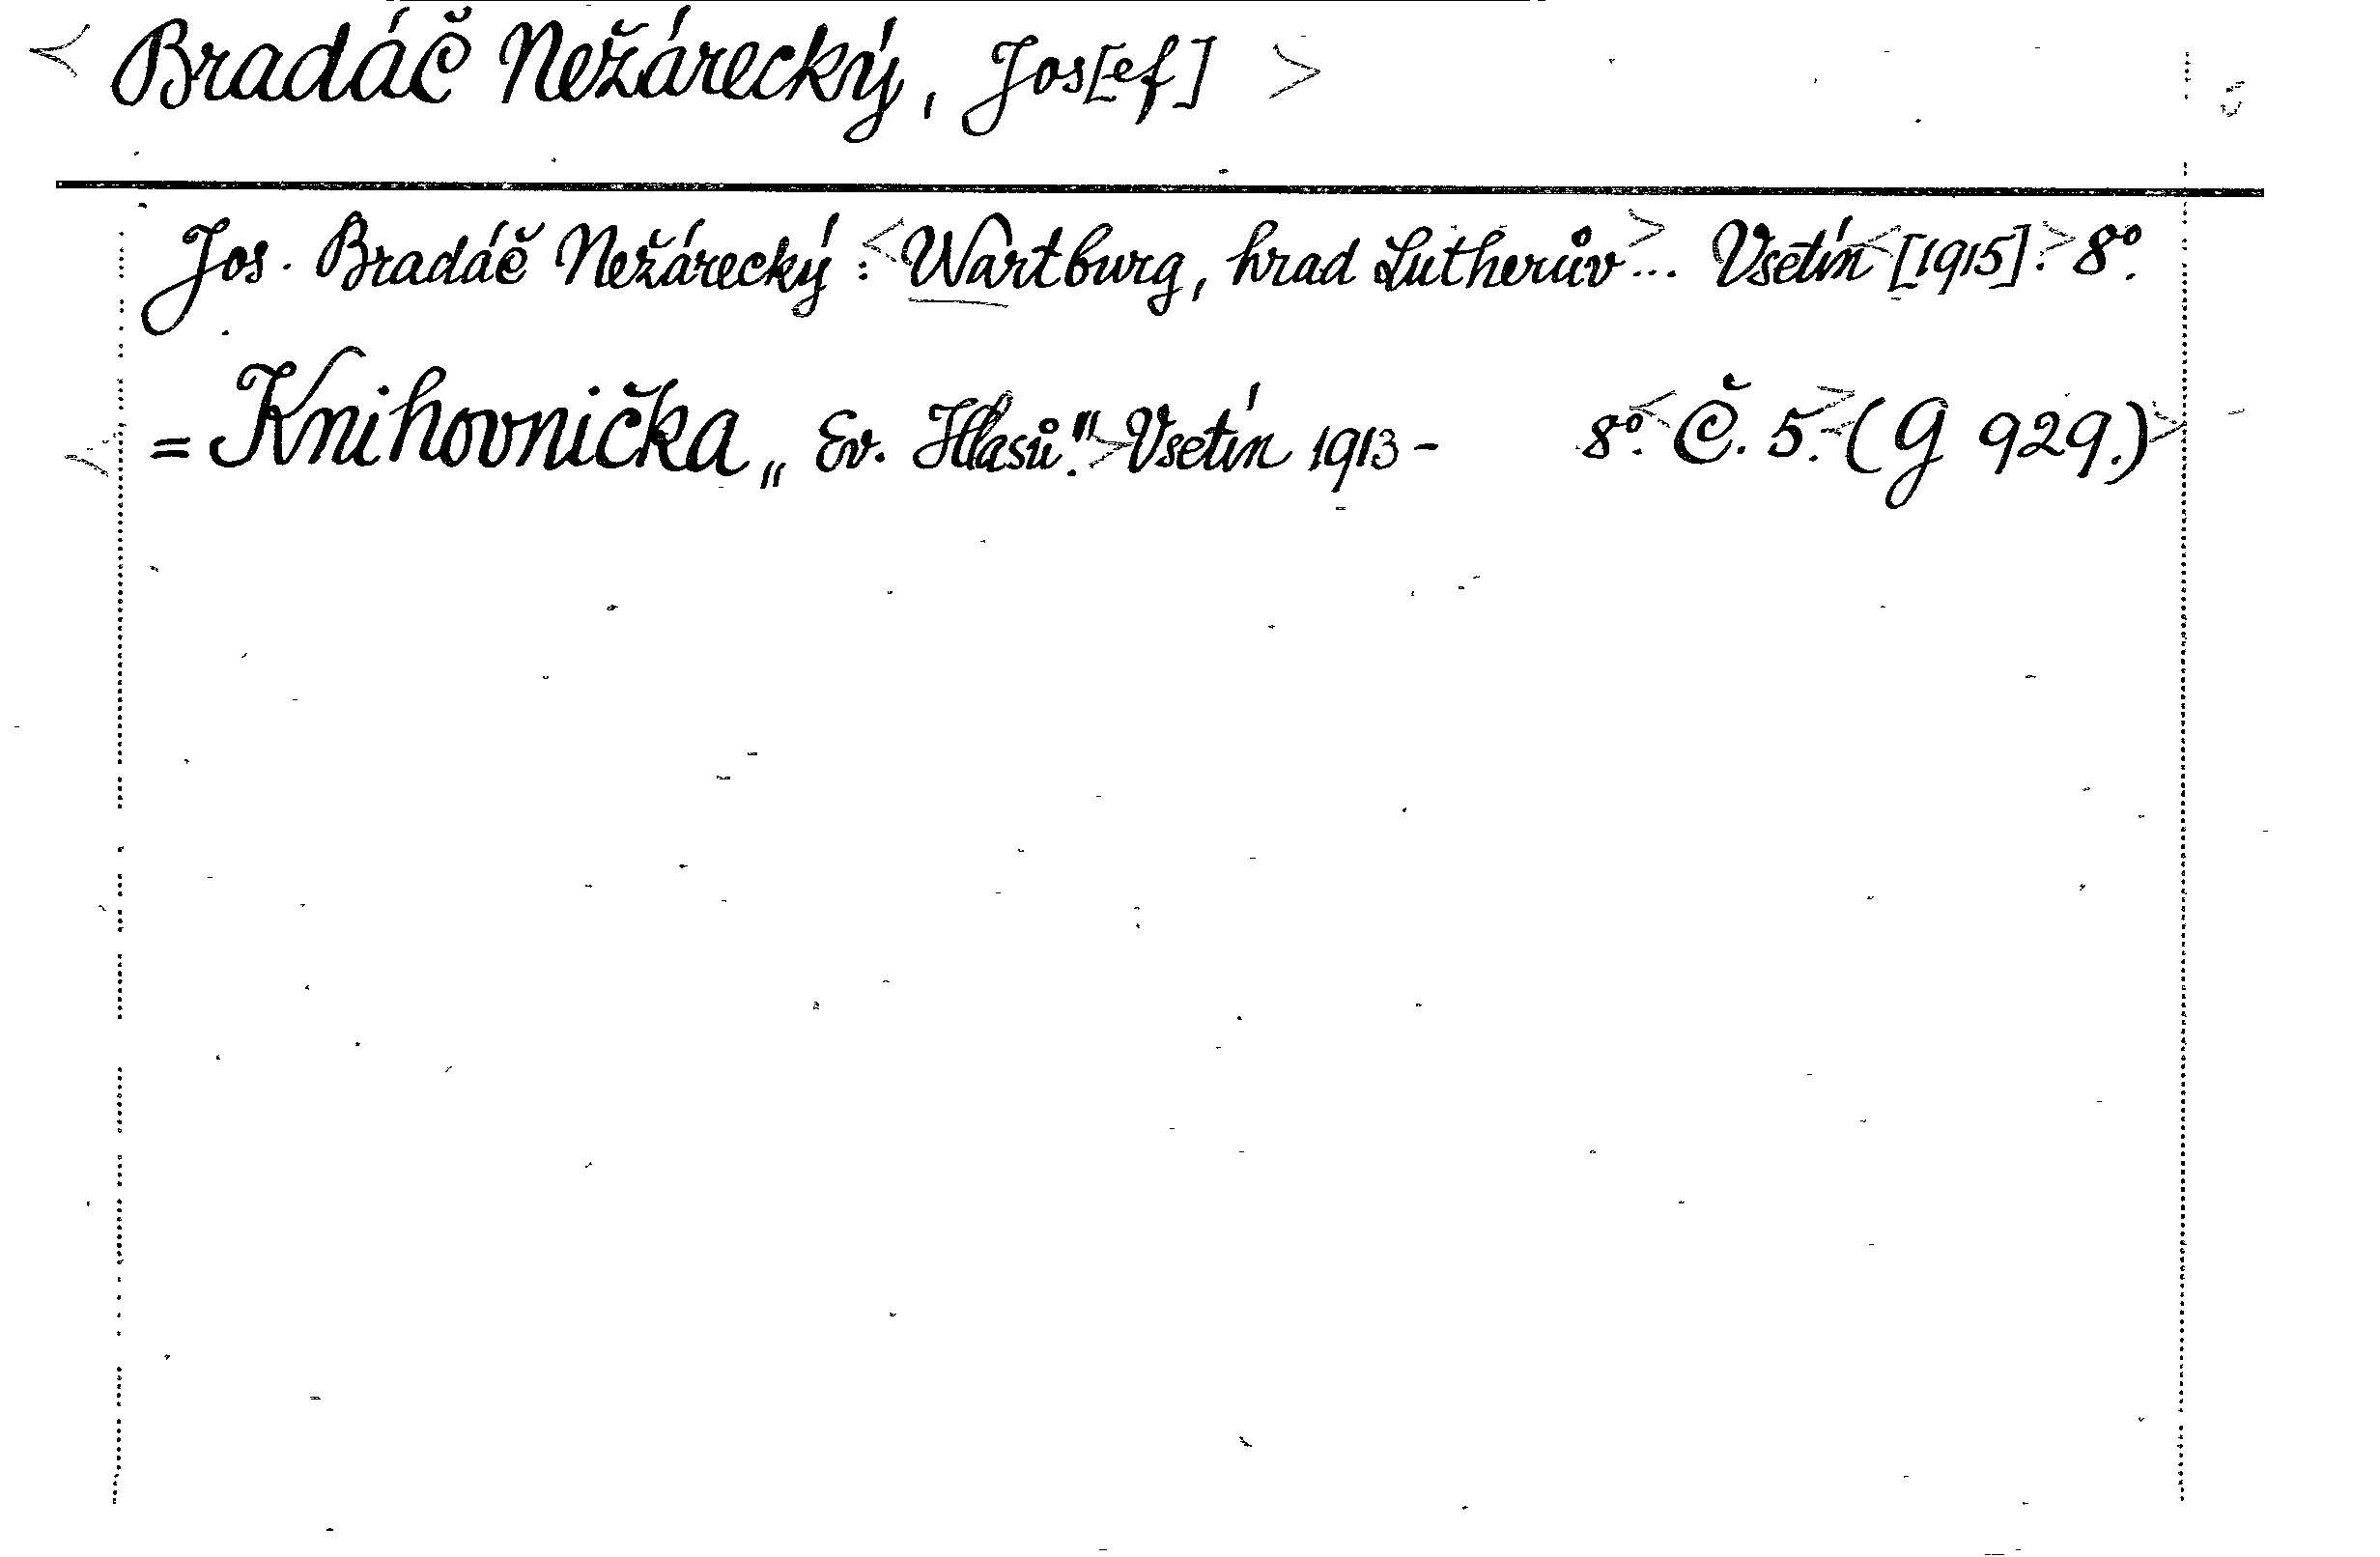 < Bradáč Nežárecký, Jos[ef] >
Jos. Bradáč Nežárecký : <Wartburg, hrad Lutherův> ... Vsetín <[1915].> 8°.
< = Knihovnička „Ev. Hlasů." > Vsetín 1913 - 8°. < Č. 5. > < (G 929.) >